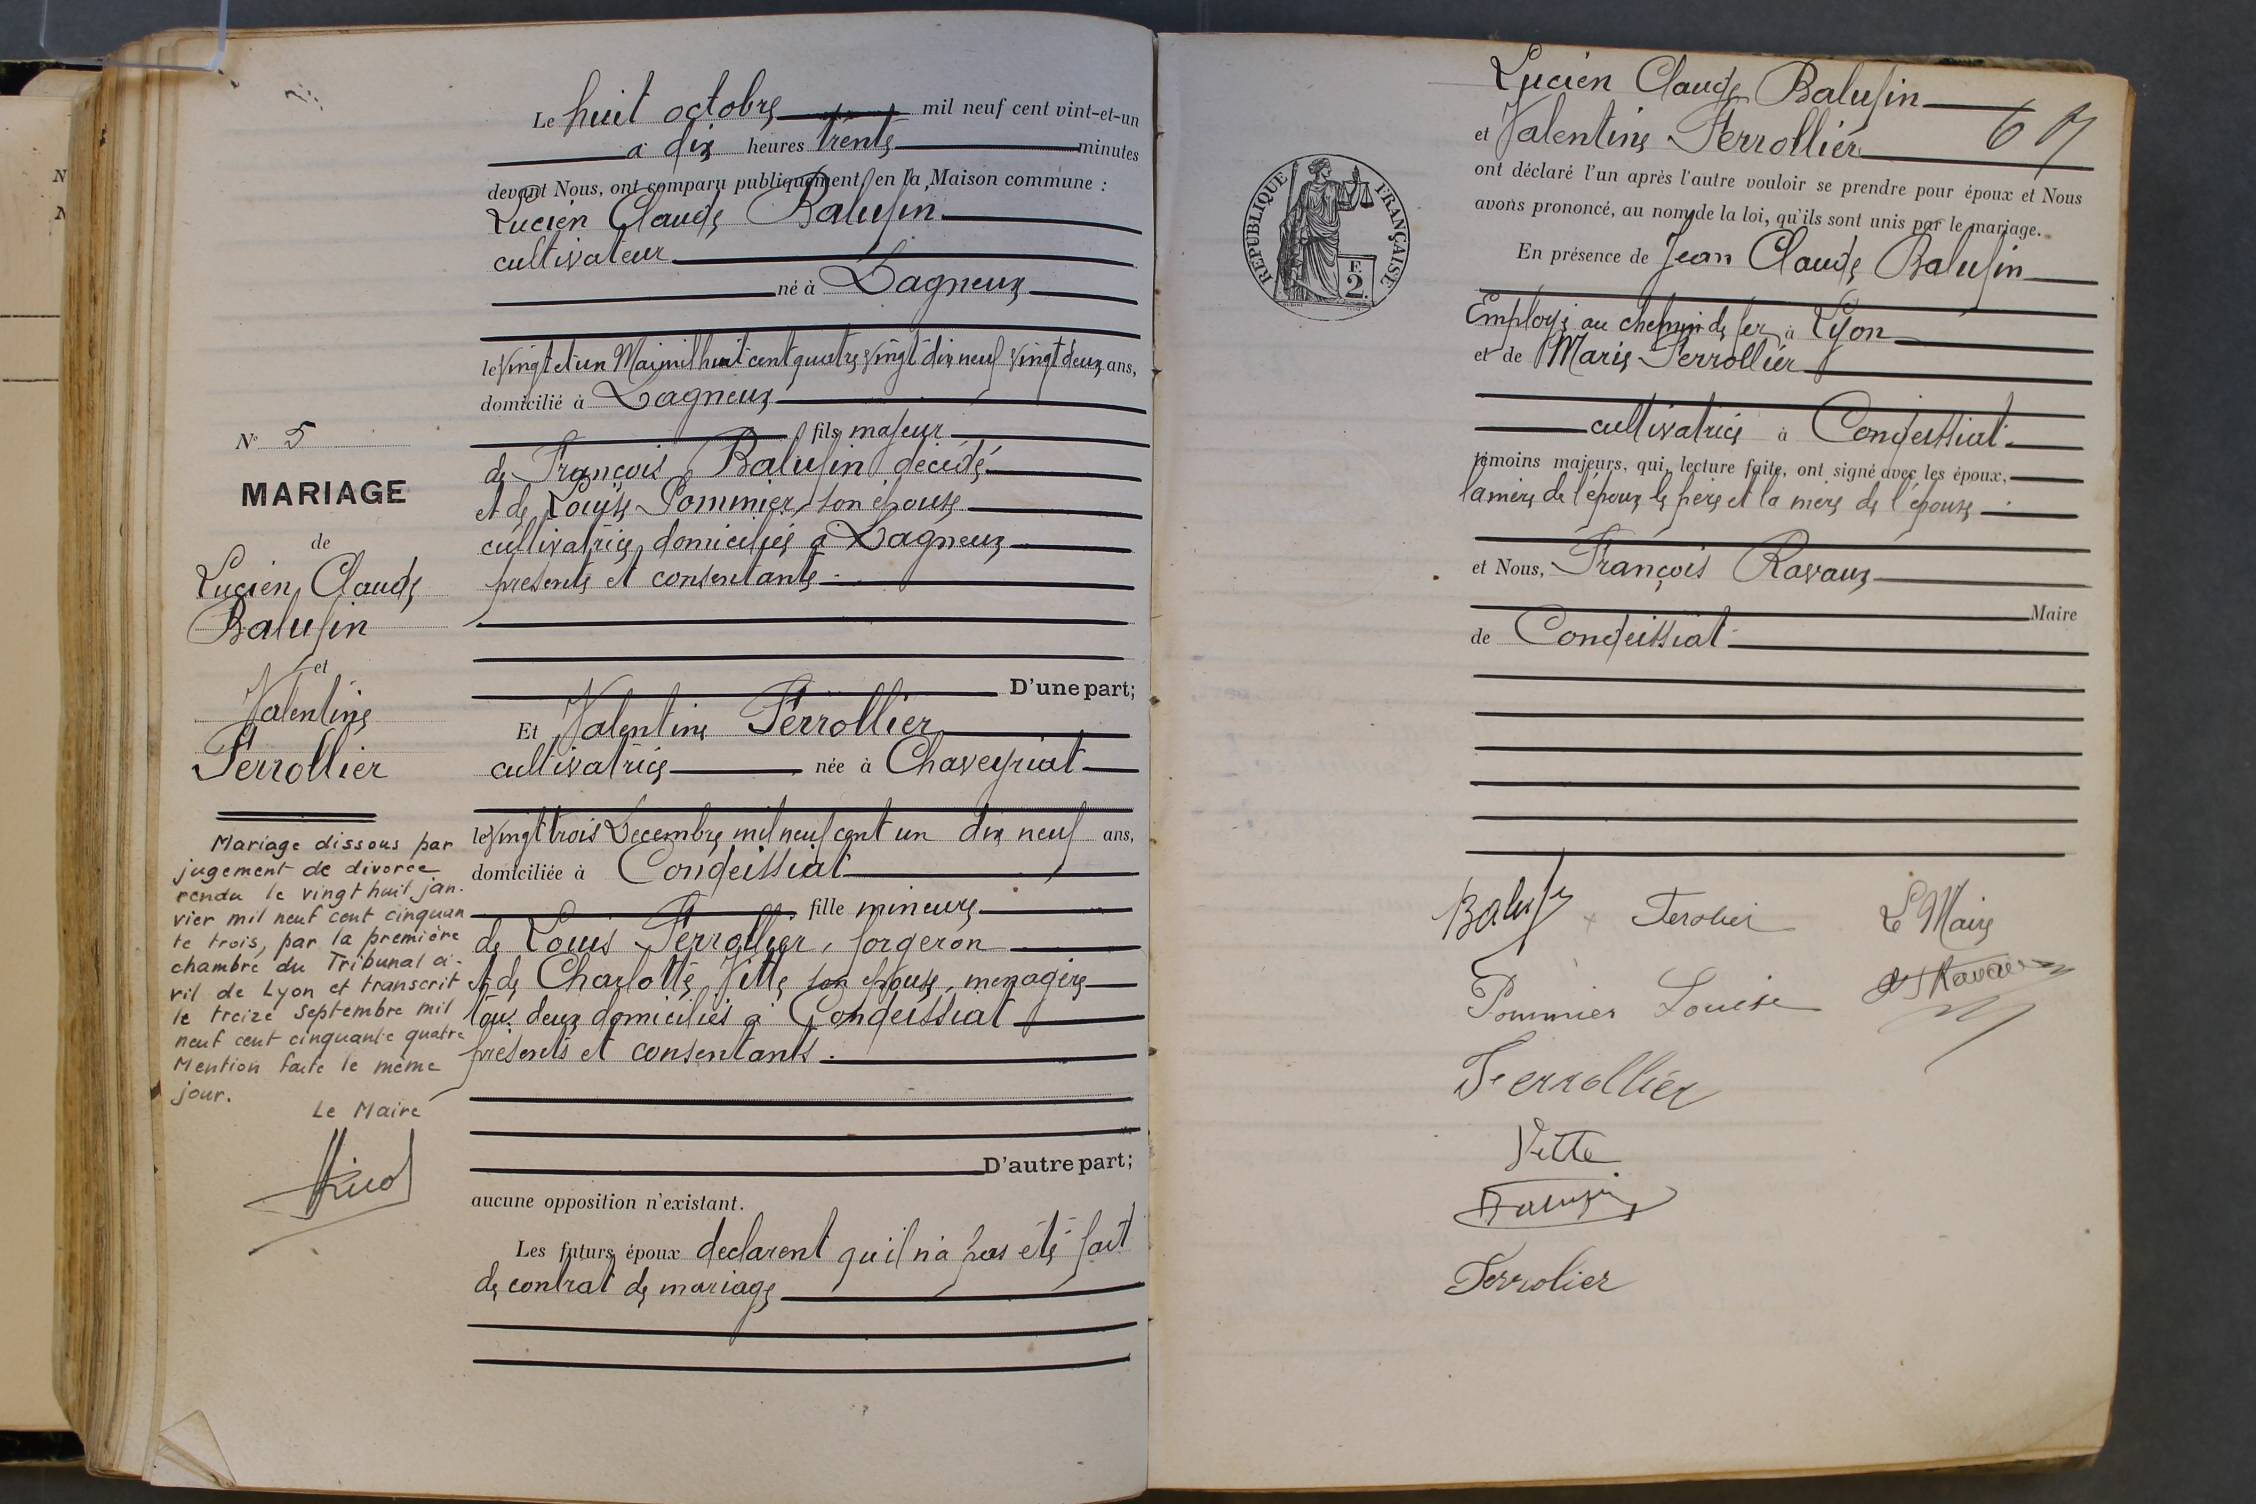 Le huit octobre mil neuf cent vint-et-un
à dix heures trente minutes
devant Nous, ont comparu publiquement en la Maison commune :
Lucien Claude Balufin
cultivateur
né à Dagneux
le vingt et un Mai mil huit cent quatre vingt dix neuf vingt deux ans,
domicilié à Dagneux
fils majeur
de François Balufin décédé
et de Louise Pommier, son épouse
cultivatrice, domiciliés à Dagneux
présents et consentants.
D'une part;
Et Valentine Ferrollier
cultivatrice née à Chaveyriat
le vingt trois Decembre mil neuf cent un dix neuf ans,
domiciliée à Condeissiat
fille mineure
de Louis Ferrollier, forgeron
et de Charlotte Vitte son épouse, menagère
tous deux domiciliés à Condeissiat
présents et consentants.
D'autre part;
aucune opposition n'existant.
Les futurs époux declarent qu'il n'a pas été fait
de contrat de mariage
N° 5
MARIAGE
de
Lucien Claude
Balufin
et
Valentine
Ferrollier
Mariage dissous par
jugement de divorce
rendu le vingt huit jan-
vier mil neuf cent cinquan
te trois, par la première
chambre du Tribunal ci-
vil de Lyon et transcrit
le treize Septembre mil
neuf cent cinquante quatre
Mention faite le même
jour.
Le Maire
Lucien Claude Balufin
67
et Valentine Ferrollier
ont déclaré l'un après l'autre vouloir se prendre pour époux et Nous
avons prononcé, au nom de la loi, qu'ils sont unis par le mariage.
RÉPUBLIQUE FRANÇAISE
F.
2.
En présence de Jean Claude Balufin
Employé au chemin de fer à Lyon
et de Marie Ferrollier
cultivatrice à Condeissiat
témoins majeurs, qui, lecture faite, ont signé avec les époux,
la mère de l'époux le père et la mère de l'épouse
et Nous, François Ravaux
Maire
de Condeissiat
Balufin Ferolier Le Maire
Pommier Louise Ravaux
Ferrollier
Vitte
Balufin
Ferrolier